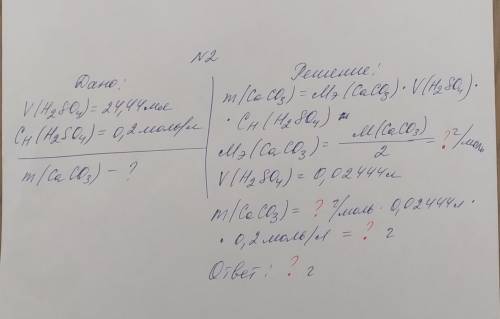 N2
Дано:
V(H₂SO₄) = 24,44 мл
Cн(H₂SO₄) = 0,2 моль/л
m(CaCO₃) - ?
Решение:
m(CaCO₃) = Mэ(CaCO₃) · V(H₂SO₄) ·
· Cн(H₂SO₄)
Mэ(CaCO₃) = M(CaCO₃)/2 = ? г/моль
V(H₂SO₄) = 0,02444 л
m(CaCO₃) = ? г/моль · 0,02444 л ·
· 0,2 моль/л = ? г
Ответ: ? г